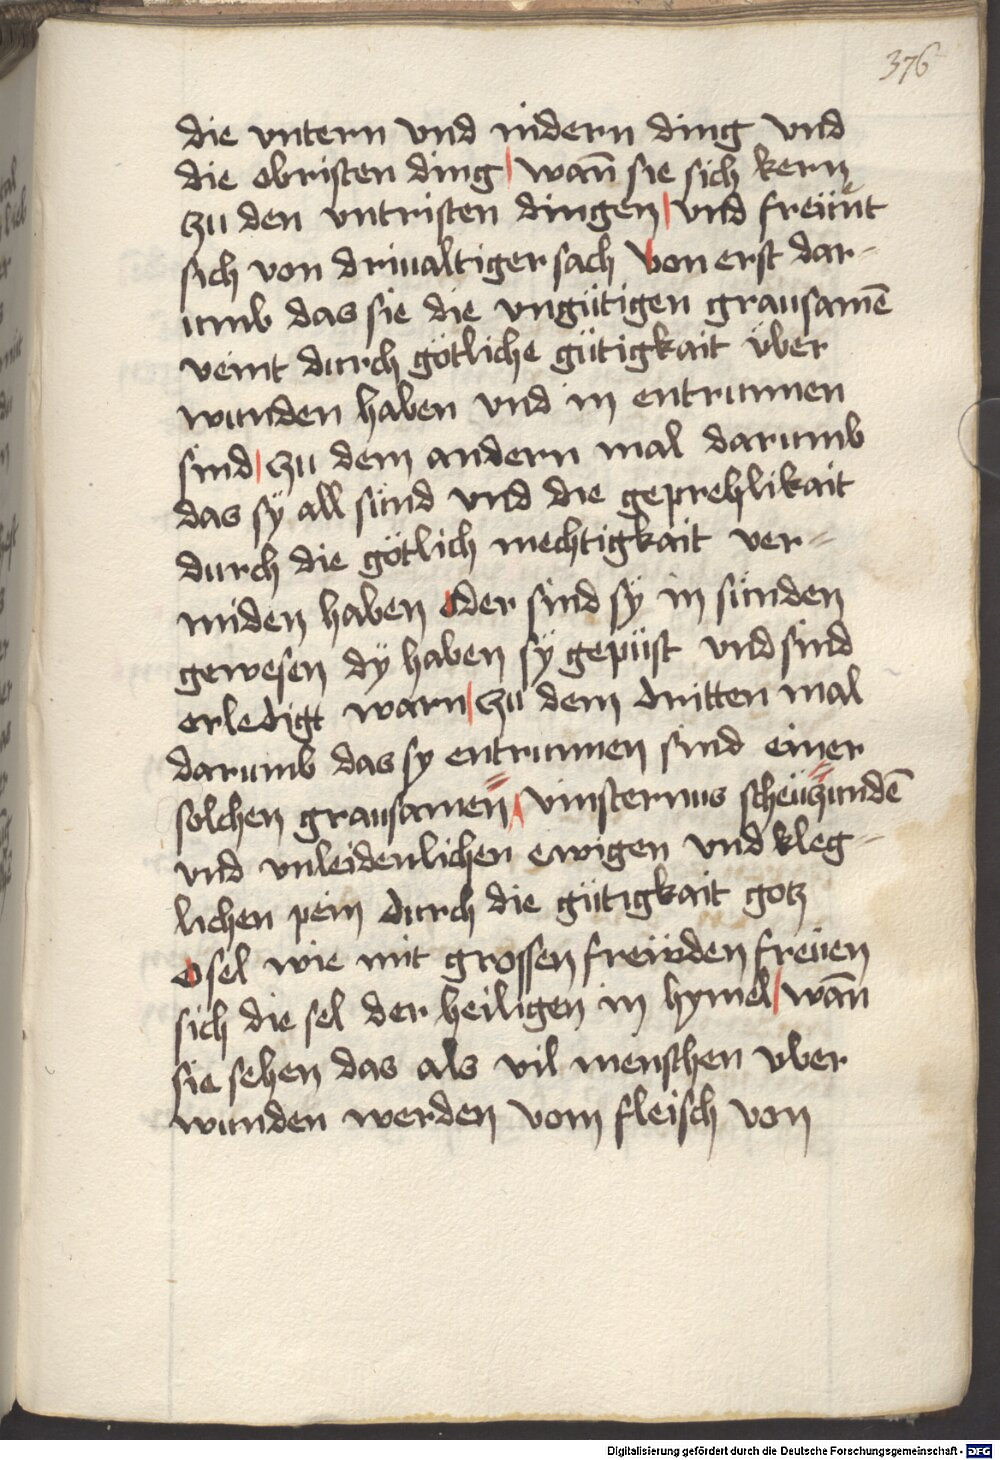 376
die vntern vnd nidern ding vnd
die obristen ding / wan̄ sie sich kern
zu den vntristen dingen / vnd freẅnt
sich von driualtiger sach Von erst dar-
umb das sie die vngütigen grausamē
veint durch götliche gütigkait über
wunden haben vnd in entrunnen
sind / zu dem andern mal darumb
das sÿ all sünd vnd die geprechlikait
durch die götlich mechtigkait ver=
miden haben oder sind sÿ in sünden
gewesen dÿ haben sÿ gepüst vnd sind
erledigt warn / zu dem dritten mal
darumb das sy entrunnen sind einer
solchen grausamen / vinsternus scheüzundē
vnd vnleidenlichen ewigen vnd kleg-
lichen pein durch die gütigkait gotz
o sel wie mit grossen freüden freüen
sich die sel der heiligen in hymel / wan̄
sie sehen das als vil menschen vber
wunden werden vom fleisch von
Digitalisierung gefördert durch die Deutsche Forschungsgemeinschaft - DFG